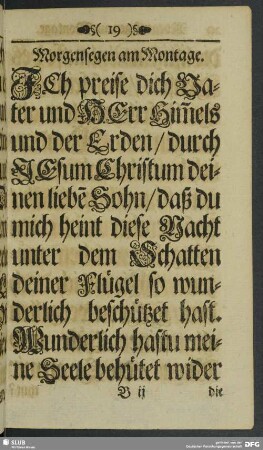 ( 19 )
Morgensegen am Montage.
ICh preise dich Va-
ter und HErr Him̄els
und der Erden / durch
JEsum Christum dei-
nen liebē Sohn / daß du
mich heint diese Nacht
unter dem Schatten
deiner Flügel so wun-
derlich beschützet hast.
Wunderlich hastu mei-
ne Seele behütet wider
B ij die
SLUB
DFG